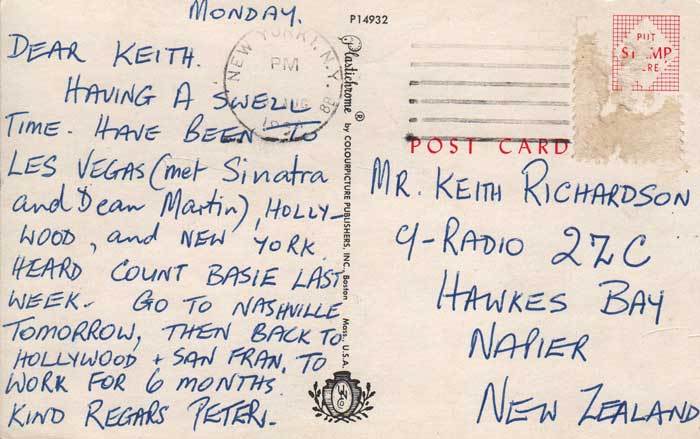 MONDAY.
DEAR KEITH.
HAVING A SWELL
TIME. HAVE BEEN TO
LES VEGAS (met Sinatra
and Dean Martin), HOLLY-
WOOD, and NEW YORK.
HEARD COUNT BASIE LAST
WEEK. GO TO NASHVILLE
TOMORROW, THEN BACK TO
HOLLYWOOD + SAN FRAN. TO
WORK FOR 6 MONTHS.
KIND REGARS PETER.
NEW YORK, N.Y.
PM
P14932
Plastichrome ® by COLOURPICTURE PUBLISHERS, INC., Boston Mass., U.S.A.
PUT
STAMP
HERE
POST CARD
MR. KEITH RICHARDSON
C/- RADIO 2ZC
HAWKES BAY
NAPIER
NEW ZEALAND